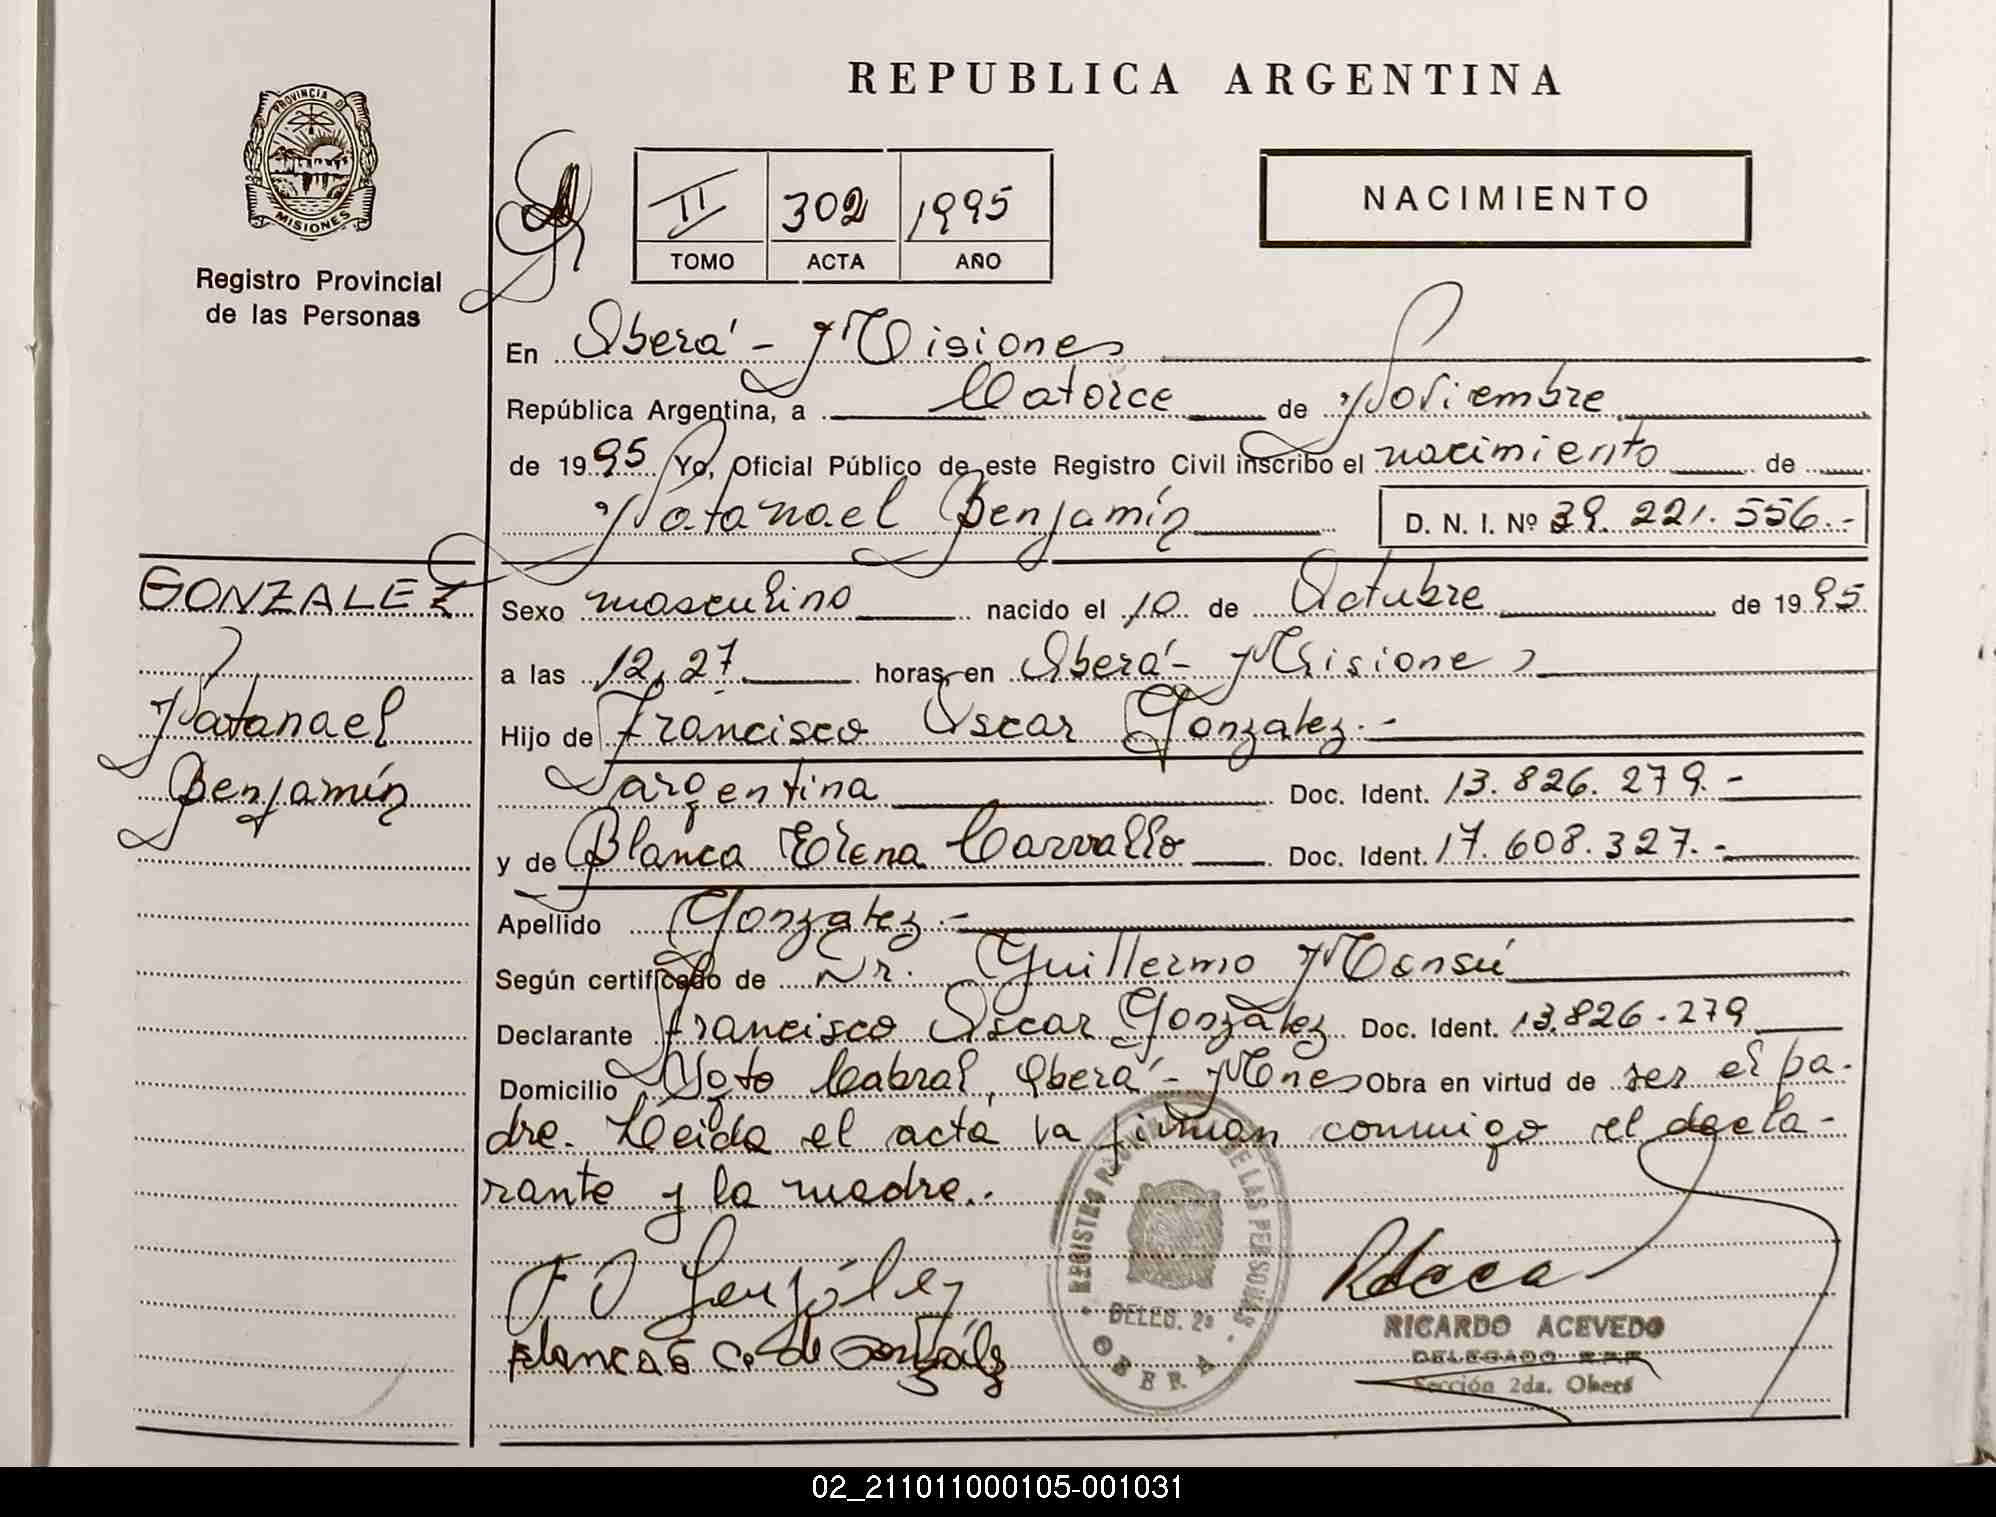 REPUBLICA ARGENTINA
PROVINCIA DE
MISIONES
Registro Provincial
de las Personas
II 302 1995
TOMO ACTA AÑO
NACIMIENTO
En Oberá - Misiones
República Argentina, a Catorce de Noviembre
de 1995 Yo, Oficial Público de este Registro Civil inscribo el nacimiento de
Natanael Benjamín D. N. I. Nº 39.221.556.-
GONZALEZ
Natanael
Benjamín
Sexo masculino nacido el 10 de Octubre de 1995
a las 12,27 horas, en Oberá - Misiones
Hijo de Francisco Oscar Gonzalez.-
argentina Doc. Ident. 13.826.279.-
y de Blanca Elena Carvallo Doc. Ident. 17.608.327.-
Apellido Gonzalez.-
Según certificado de Dr. Guillermo Mensú
Declarante Francisco Oscar Gonzalez Doc. Ident. 13.826.279
Domicilio Soto Cabral, Oberá - Mnes Obra en virtud de ser el pa-
dre. Leida el acta la firman conmigo el decla-
rante y la madre.-
F O González
Blanca E C. de González
REGISTRO PROVINCIAL DE LAS PERSONAS
DELEG. 2ª
OBERA
RICARDO ACEVEDO
DELEGADO RPP
Sección 2da. Oberá
02_211011000105-001031